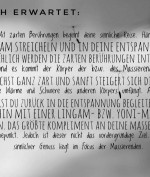 H ERWARTET:
Mit zarten Berührungen beginnt deine sinnliche Reise. Han
AM STREICHELN UND IN DEINE ENTSPAN
HLICH WERDEN DIE ZARTEN BERÜHRUNGEN INT
nd es kommt der Körper der bzw. des Masseren
CHST GANZ ZART UND SANFT STEIGERT SICH D
me und Schwere des anderen Körpers
ST DU ZURÜCK IN DIE ENTSPANNUNG BEGLEITE
HIN MIT EINER LINGAM- BZW. YONI-M
N. DAS GRÖßTE KOMPLIMENT AN DEINE MASSE
epunkt. Jedoch ist dieser nicht das Ziel
sinnlicher Genuss liegt im Focus der Massierenden